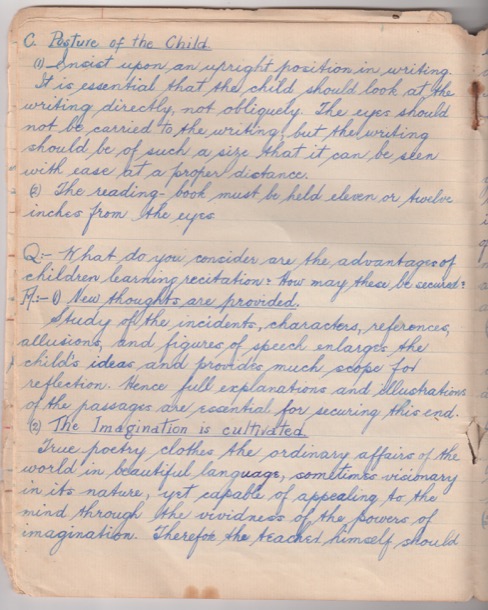 C. Posture of the Child
(1) Insist upon an upright position in writing.
It is essential that the child should look at the
writing directly, not obliquely. The eyes should
not be carried to the writing, but the writing
should be of such a size that it can be seen
with ease at a proper distance.
(2) The reading-book must be held eleven or twelve
inches from the eyes
Q:- What do you consider are the advantages of
children learning recitation? How may these be secured?
A:- 1) New thoughts are provided.
Study of the incidents, characters, references,
allusions, and figures of speech enlarges the
child's ideas, and provides much scope for
reflection. Hence full explanations and illustrations
of the passages are essential for securing this end.
(2) The Imagination is cultivated.
True poetry clothes the ordinary affairs of the
world in beautiful language, sometimes visionary
in its nature, yet capable of appealing to the
mind through the vividness of the powers of
imagination. Therefore the teacher himself should